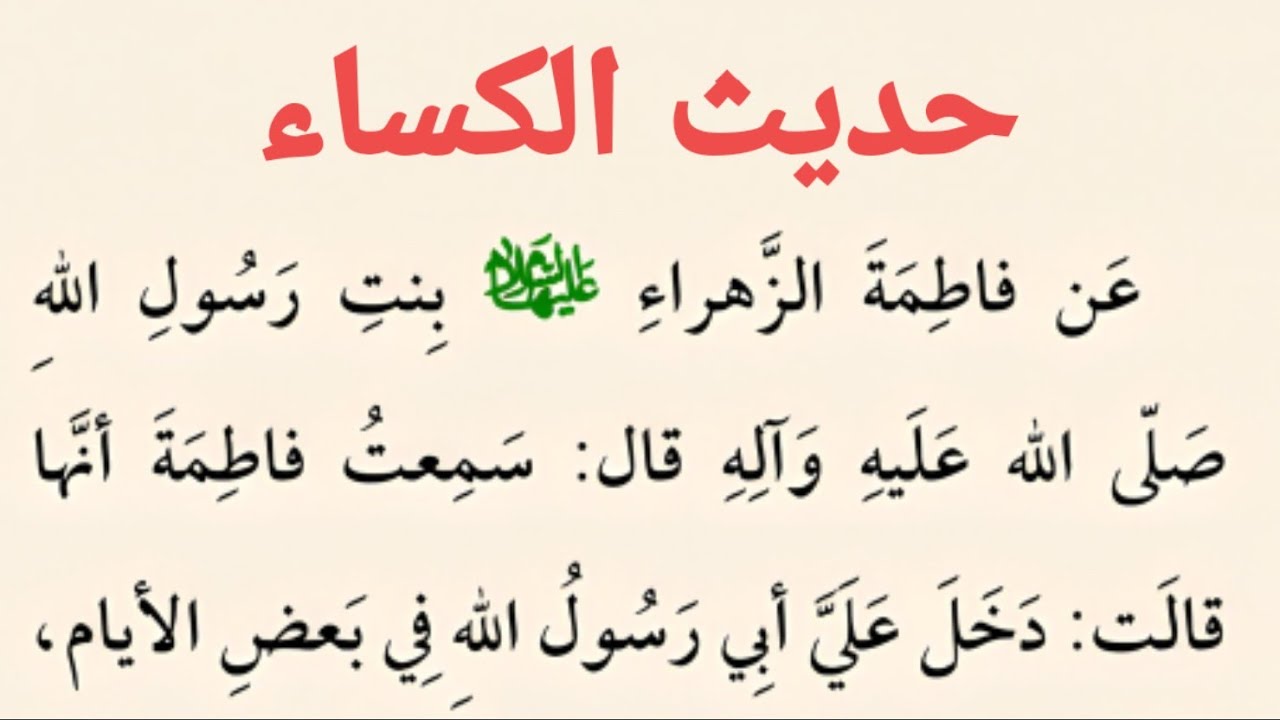 حديث الكساء
عَن فاطِمَةَ الزَّهراءِ عَلَيهَا السَّلَام بِنتِ رَسُولِ اللهِ
صَلّى الله عَلَيهِ وَآلِهِ قال: سَمِعتُ فاطِمَةَ أنَّها
قالَت: دَخَلَ عَلَيَّ أبي رَسُولُ اللهِ فِي بَعضِ الأيام،